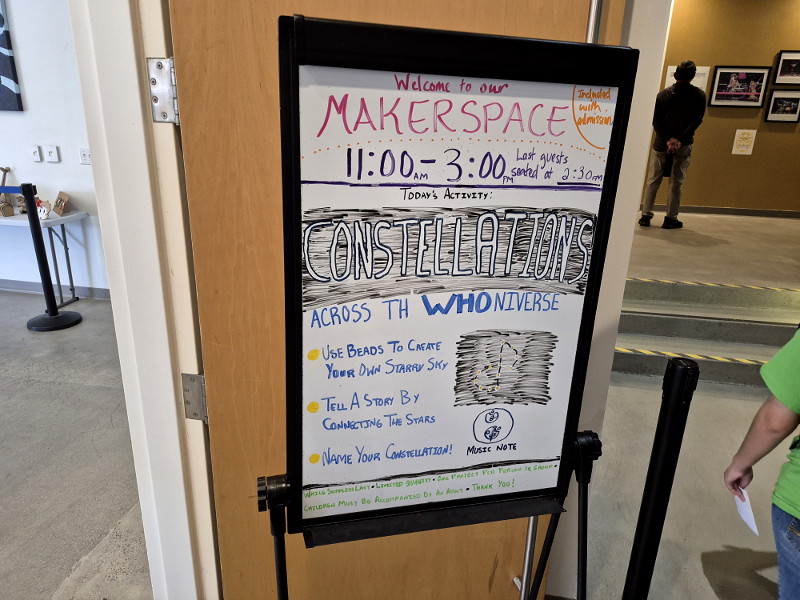 Welcome to our
MAKERSPACE
Included
with
admission
11:00AM - 3:00PM
Last guests
seated at 2:30PM
TODAY'S ACTIVITY:
CONSTELLATIONS
ACROSS TH WHONIVERSE
USE BEADS TO CREATE
YOUR OWN STARRY SKY
TELL A STORY BY
CONNECTING THE STARS
NAME YOUR CONSTELLATION!
MUSIC NOTE
WHILE SUPPLIES LAST • LIMITED QUANTITY • ONE PROJECT PER PERSON IN GROUP •
CHILDREN MUST BE ACCOMPANIED BY AN ADULT • THANK YOU!